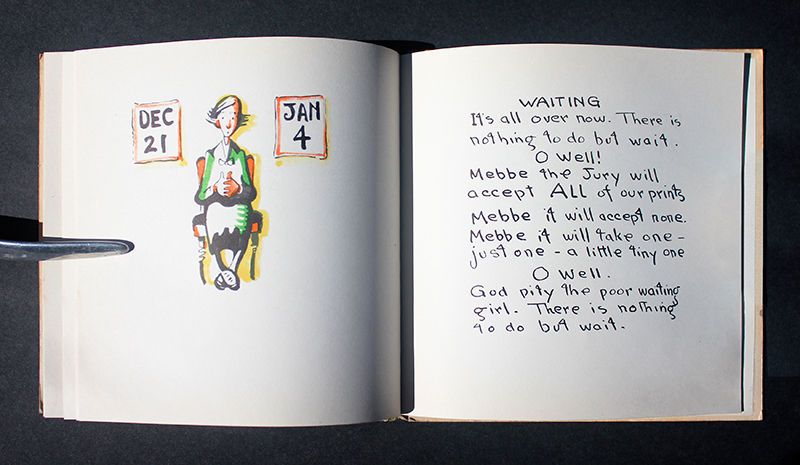 DEC
21
JAN
4
WAITING
It's all over now. There is
nothing to do but wait.
O Well!
Mebbe the Jury will
accept ALL of our prints
Mebbe it will accept none.
Mebbe it will take one -
just one - a little tiny one
O Well.
God pity the poor waiting
girl. There is nothing
to do but wait.